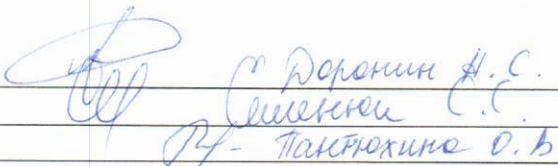 Доронин Н. С.
Семенюк С. С.
Пантюхина О. В